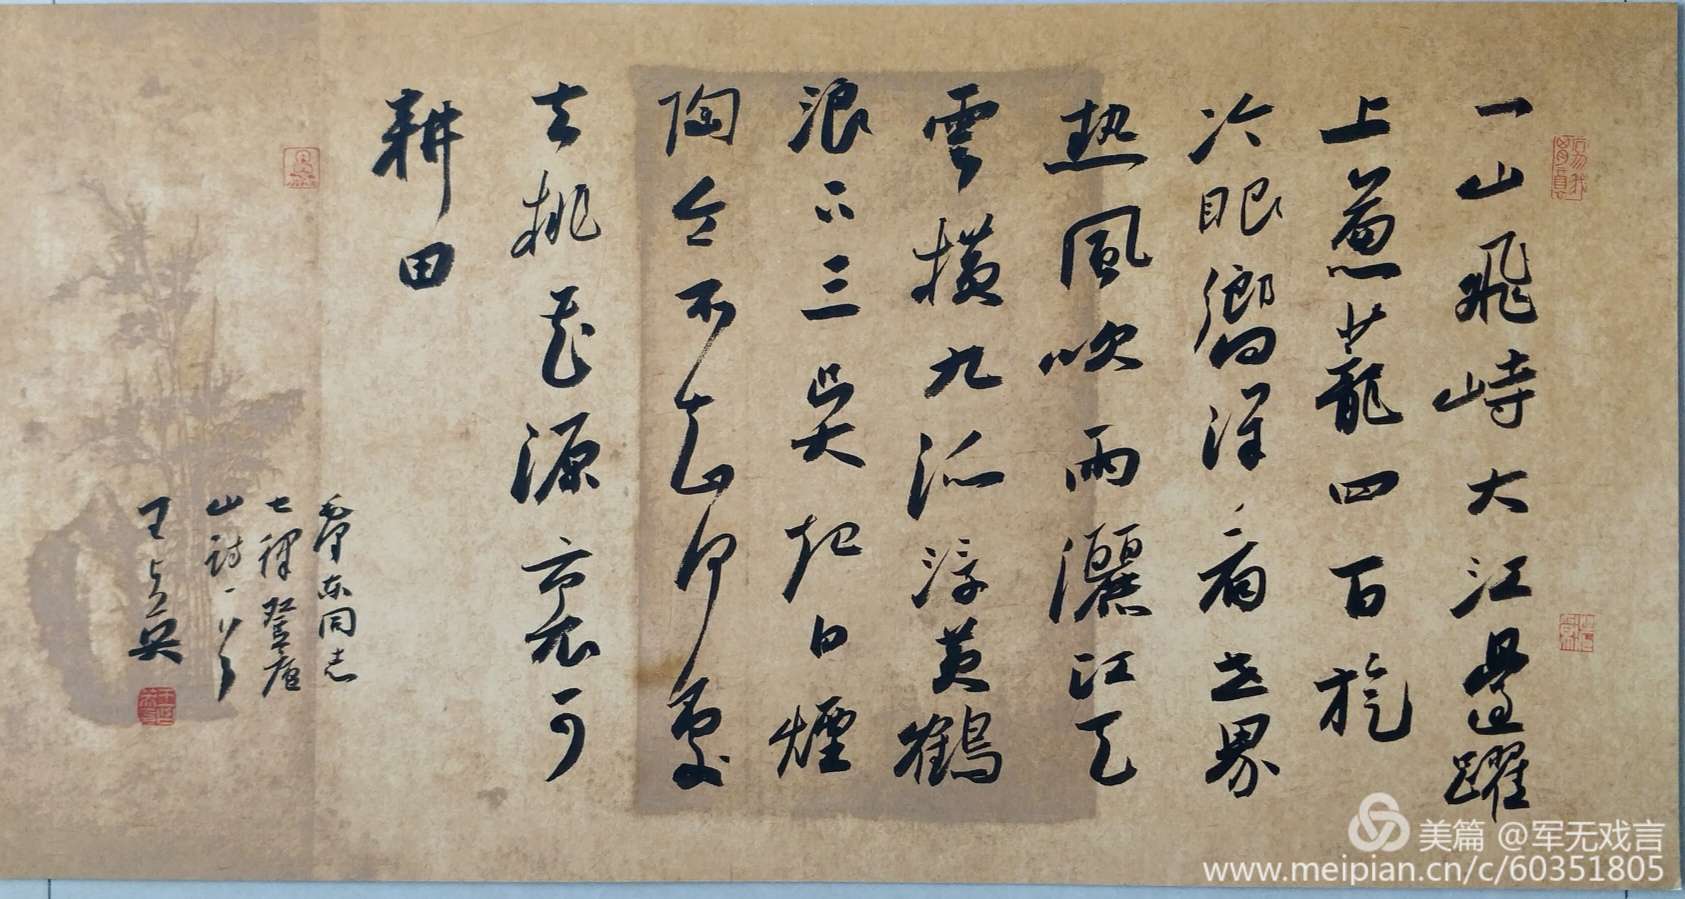 一山飛峙大江邊躍
上蔥蘢四百旋
冷眼嚮洋看世界
热風吹雨灑江天
雲橫九派浮黃鶴
浪下三吳起白煙
陶令不知何處
去桃花源裏可
耕田
毛澤東同志
七律登廬
山詩一首
王英
美篇 @军无戏言
www.meipian.cn/c/60351805